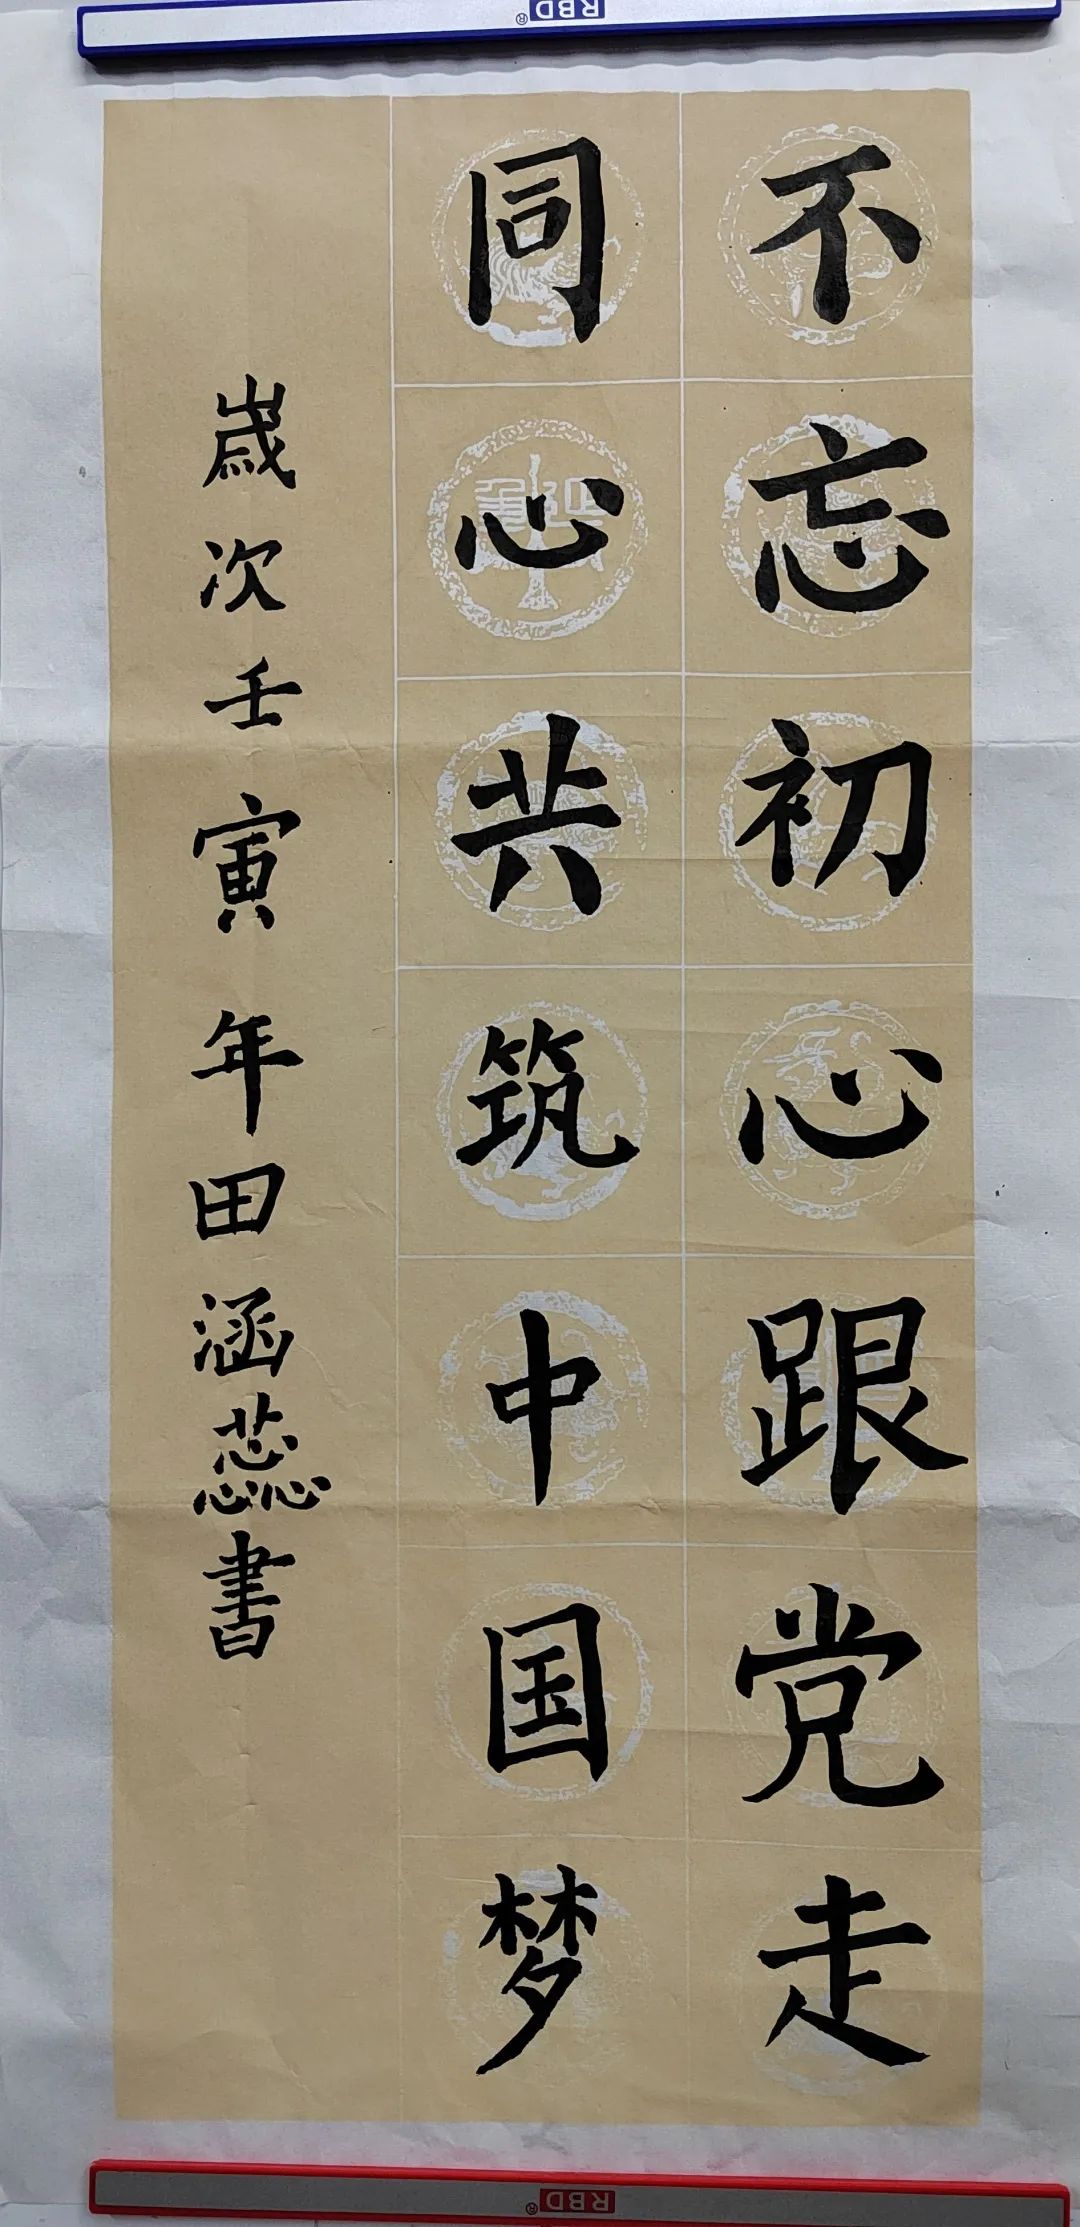 RBD®
不忘初心跟党走
同心共筑中国梦
歲次壬寅年田涵蕊書
RBD®